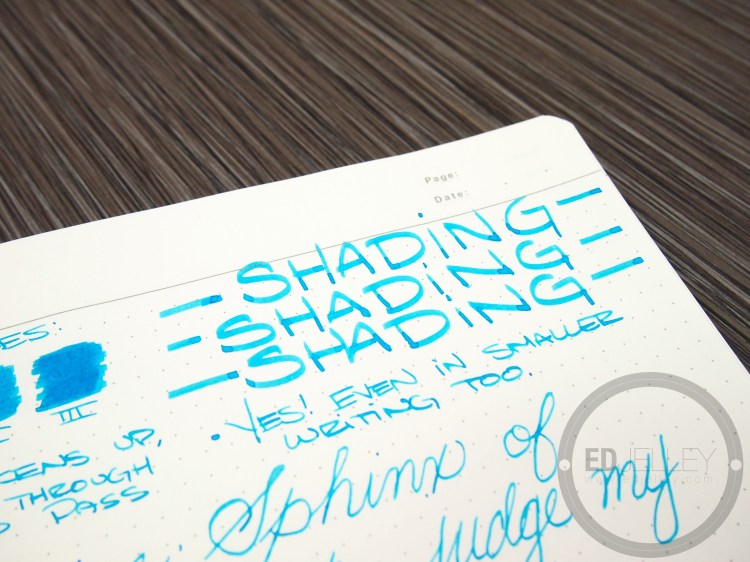 Page:
Date:
- SHADiNG -
- SHADiNG -
- SHADiNG -
• YES! EVEN IN SMALLER
WRITING TOO.
III
UP,
THROUGH
PASS
Sphinx of
judge my
ED JELLEY